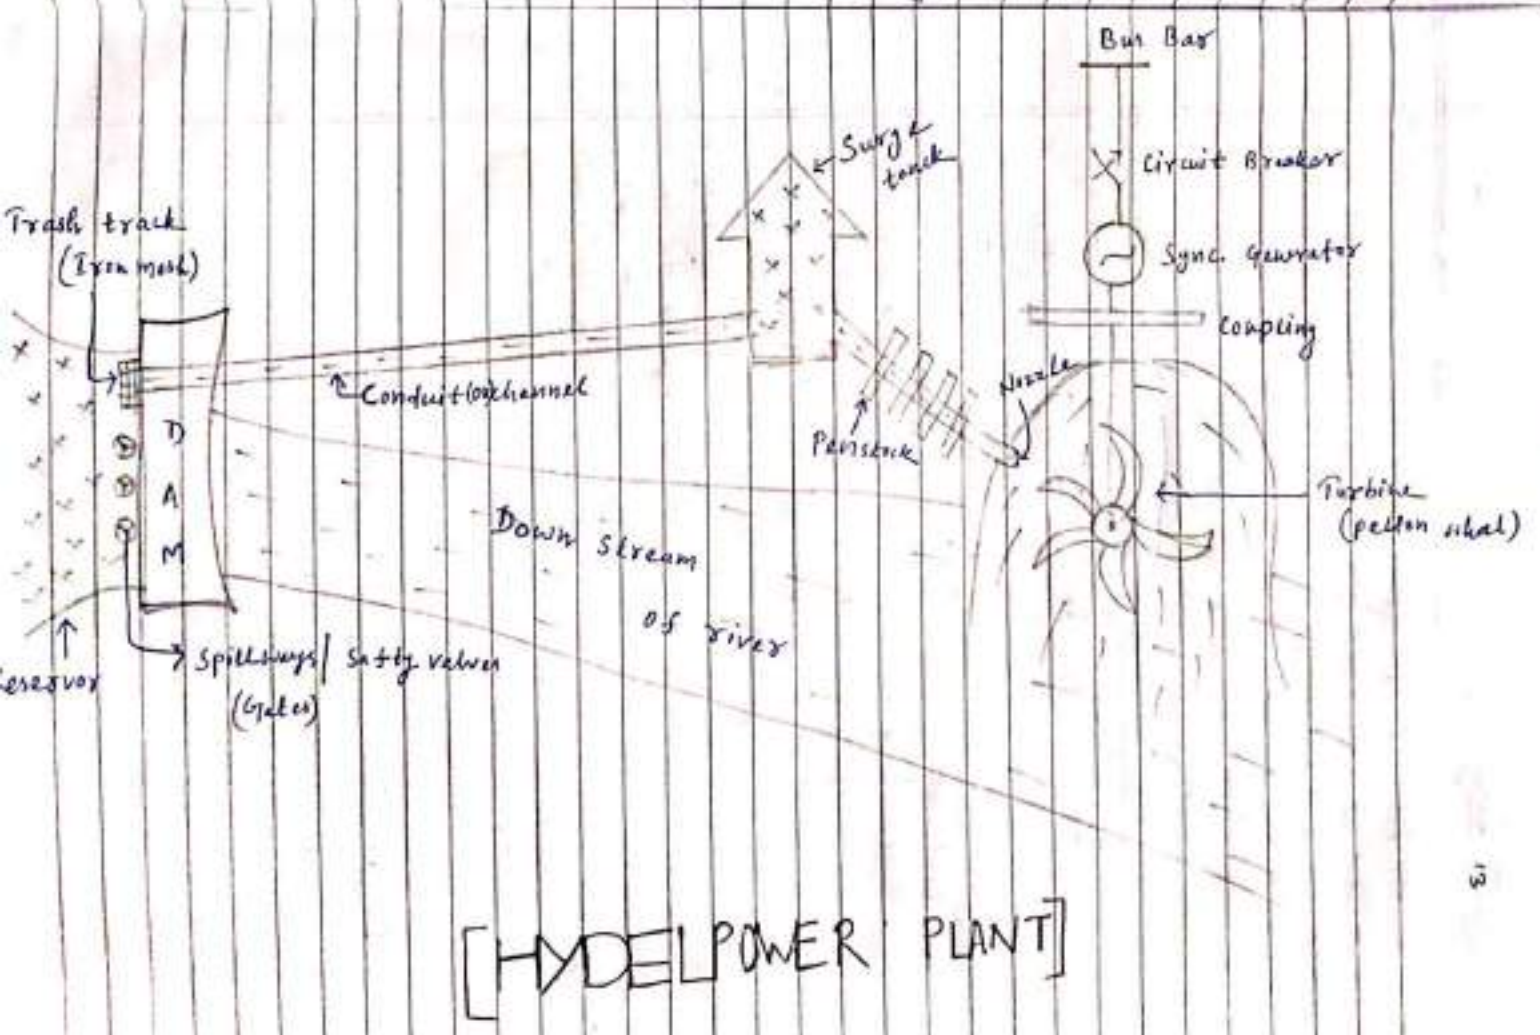 Bus Bar
Circuit Breaker
Sync. Generator
Coupling
Surge
tanck
Trash track
(Iron mesh)
Conduit (or) channel
Nozzle
Penstock
Turbine
(pelton whal)
DAM
Down stream
of river
Spillways/ Safty valves
(Gates)
Reservor
[HYDEL POWER PLANT]